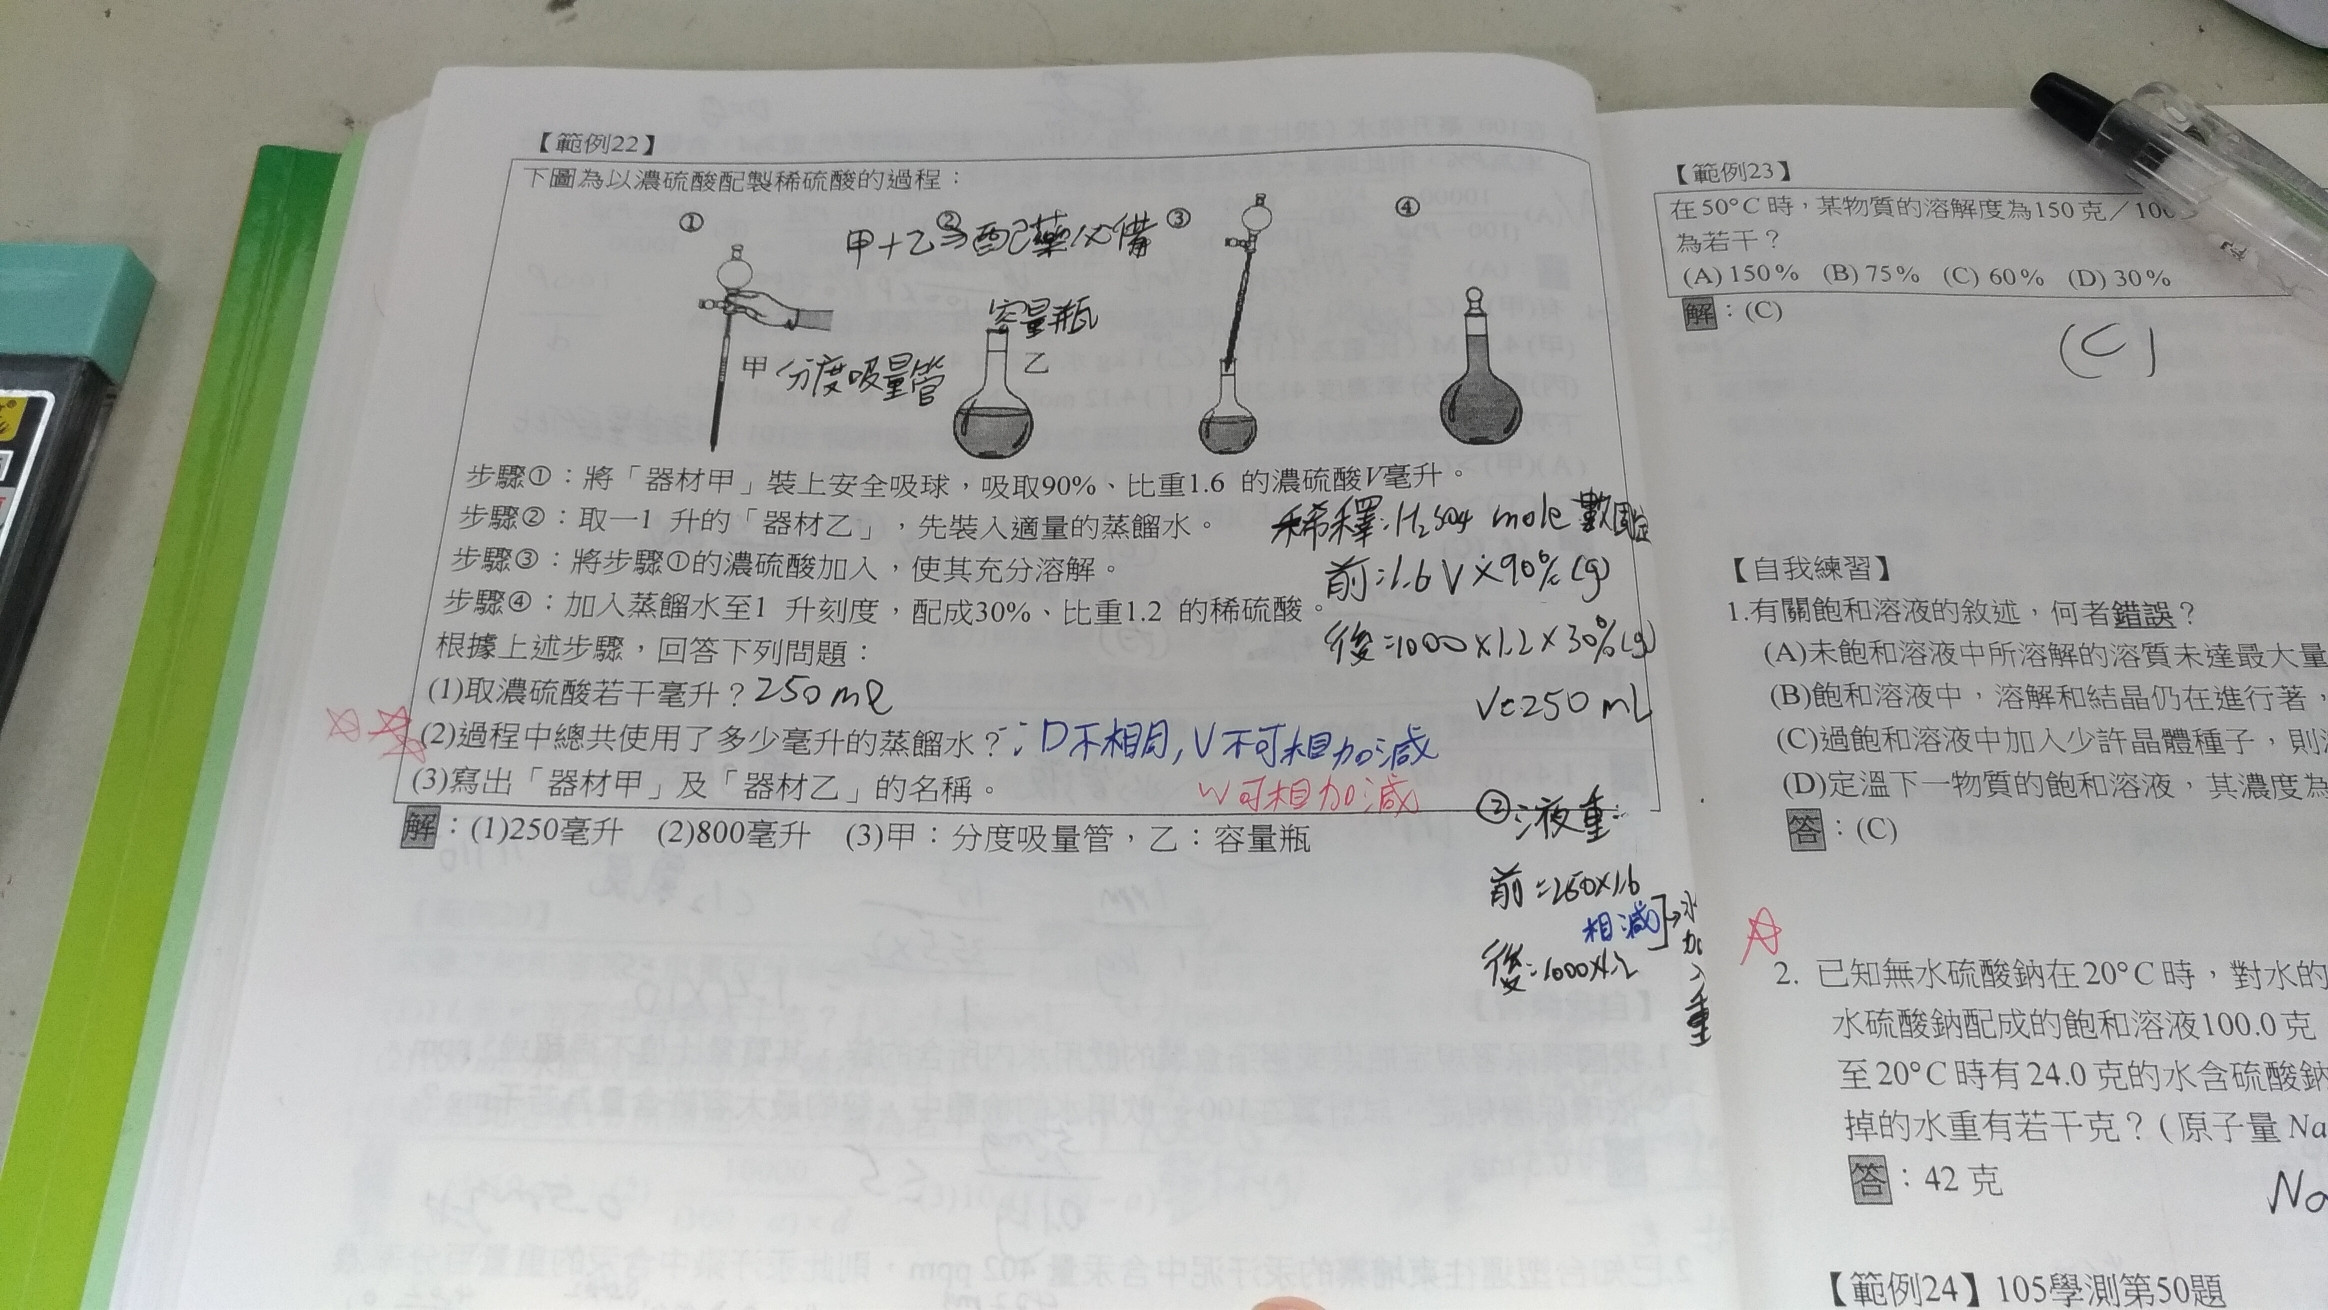 【範例22】
下圖為以濃硫酸配製稀硫酸的過程：
① ② ③ ④
甲+乙為配藥必備
容量瓶
甲 分度吸量管
乙
步驟①：將「器材甲」裝上安全吸球，吸取90%、比重1.6 的濃硫酸V毫升。
步驟②：取一1 升的「器材乙」，先裝入適量的蒸餾水。
稀釋:H2SO4 mole 數固定
步驟③：將步驟①的濃硫酸加入，使其充分溶解。
前:1.6 V×90%(g)
步驟④：加入蒸餾水至1 升刻度，配成30%、比重1.2 的稀硫酸。
後:1000×1.2×30%(g)
根據上述步驟，回答下列問題：
(1)取濃硫酸若干毫升？250ml
V=250 mL
(2)過程中總共使用了多少毫升的蒸餾水？∵D不相同,V不可相加減
(3)寫出「器材甲」及「器材乙」的名稱。
W可相加減
解：(1)250毫升 (2)800毫升 (3)甲：分度吸量管，乙：容量瓶
②液重:
前=250×1.6
相減
後:1000×1.2
→水加入重
【範例23】
在50°C時，某物質的溶解度為150克／100
為若干？
(A)150% (B)75% (C)60% (D)30%
解：(C)
(C)
【自我練習】
1.有關飽和溶液的敘述，何者錯誤？
(A)未飽和溶液中所溶解的溶質未達最大量
(B)飽和溶液中，溶解和結晶仍在進行著，
(C)過飽和溶液中加入少許晶體種子，則
(D)定溫下一物質的飽和溶液，其濃度為
答：(C)
2. 已知無水硫酸鈉在20°C時，對水的
水硫酸鈉配成的飽和溶液100.0克
至20°C時有24.0克的水含硫酸鈉
掉的水重有若干克？(原子量Na
答：42 克
Na
【範例24】105學測第50題